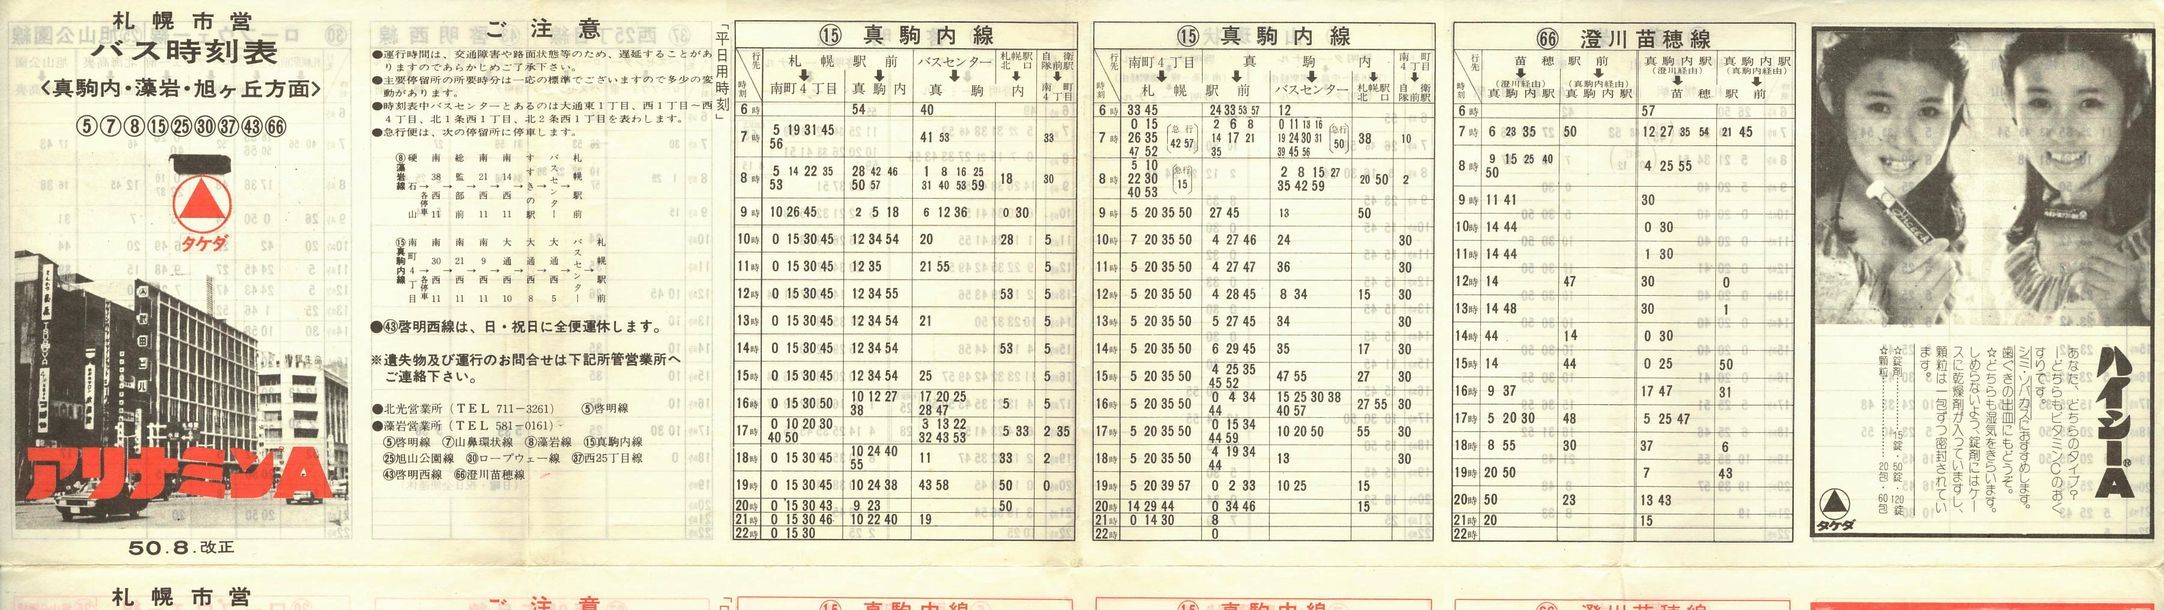 札幌市営
バス時刻表
<真駒内・藻岩・旭ヶ丘方面>
⑤⑦⑧⑮㉕㉚㊲㊸66
タケダ
アリナミンA
50.8.改正
ご注意
●運行時間は、交通障害や路面状態等のため、遅延することがあ
りますのであらかじめご了承下さい。
●主要停留所の所要時分は一応の標準でございますので多少の変
動があります。
●時刻表中バスセンターとあるのは大通東1丁目、西1丁目~西
4丁目、北1条西1丁目、北2条西1丁目を表わします。
●急行便は、次の停留所に停車します。
⑧藻岩線
硬石山→各停車→南38西11→総監部前→南21西11→南14西11→すすきの→バスセンター→札幌駅前
⑮真駒内線
南町4丁目→各停車→南30西11→南21西11→南9西11→大通西10→大通西8→大通西5→バスセンター→札幌駅前
●㊸啓明西線は、日・祝日に全便運休します。
※遺失物及び運行のお問合せは下記所管営業所へ
ご連絡下さい。
●北光営業所(TEL 711-3261) ⑤啓明線
●藻岩営業所(TEL 581-0161)
⑤啓明線 ⑦山鼻環状線 ⑧藻岩線 ⑮真駒内線
㉕旭山公園線 ㉚ロープウェー線 ㊲西25丁目線
㊸啓明西線 66澄川苗穂線
「平日用時刻」
⑮ 真駒内線
行先 時刻 札幌駅前 バスセンター 札幌駅北口 自衛隊前駅
南町4丁目 真駒内 真駒内 南町4丁目
6時 54 40
7時 5 19 31 45 56 41 53 33
8時 5 14 22 35 53 28 42 46 50 57 1 8 16 25 31 40 53 59 18 30
9時 10 26 45 2 5 18 6 12 36 0 30
10時 0 15 30 45 12 34 54 20 28 5
11時 0 15 30 45 12 35 21 55 5
12時 0 15 30 45 12 34 55 53 5
13時 0 15 30 45 12 34 54 21 5
14時 0 15 30 45 12 34 54 53 5
15時 0 15 30 45 12 34 54 25 5
16時 0 15 30 50 10 12 27 38 17 20 25 28 47 5 5
17時 0 10 20 30 40 50 3 13 22 32 43 53 5 33 2 35
18時 0 15 30 45 10 24 40 55 11 33 2
19時 0 15 30 45 10 24 38 43 58 50 0
20時 0 15 30 43 9 23 50
21時 0 15 30 46 10 22 40 19
22時 0 15 30
⑮ 真駒内線
行先 時刻 南町4丁目 真駒内 南町4丁目
札幌駅前 札幌駅前 バスセンター 札幌駅北口 自衛隊前駅
6時 33 45 24 33 53 57 12
7時 0 15 26 35 47 52 (急行 42 57) 2 6 8 14 17 21 35 0 11 13 16 19 24 30 31 39 45 56 (急行 50) 38 10
8時 5 10 22 30 40 53 (急行 15) 2 8 15 27 35 42 59 20 50 2
9時 5 20 35 50 27 45 13 50
10時 7 20 35 50 4 27 46 24 30
11時 5 20 35 50 4 27 47 36 30
12時 5 20 35 50 4 28 45 8 34 15 30
13時 5 20 35 50 5 27 45 34 30
14時 5 20 35 50 6 29 45 35 17 30
15時 5 20 35 50 4 25 35 45 52 47 55 27 30
16時 5 20 35 50 0 4 34 44 15 25 30 38 40 57 27 55 30
17時 5 20 35 50 0 15 34 44 59 10 20 50 55 30
18時 5 20 35 50 4 19 34 44 13 30
19時 5 20 39 57 0 2 33 10 25 15
20時 14 29 44 0 34 46 15
21時 0 14 30 8
22時 0
66 澄川苗穂線
行先 時刻 苗穂駅前 真駒内駅(澄川経由) 真駒内駅(真駒内経由)
(澄川経由)真駒内駅 (真駒内経由)真駒内駅 苗穂駅前
6時 57
7時 6 23 35 50 12 27 35 54 21 45
8時 9 15 25 40 50 4 25 55
9時 11 41 30
10時 14 44 0 30
11時 14 44 1 30
12時 14 47 30 0
13時 14 48 30 1
14時 44 14 0 30
15時 14 44 0 25 50
16時 9 37 17 47 31
17時 5 20 30 48 5 25 47
18時 8 55 30 37 6
19時 20 50 7 43
20時 50 23 13 43
21時 20 15
22時
ハイシーA
あなた、どちらのタイプ?
―どちらもビタミンCのおく
すりです。
シミ・ソバカスにおすすめします。
歯ぐきの出血にもどうぞ。
☆どちらも湿気をきらいます。
しめらないよう、錠剤にはケー
スに乾燥剤が入っていますし、
顆粒は一包ずつ密封されてい
ます。
☆錠剤………15錠・50錠・120錠
☆顆粒………20包・60包
タケダ
札幌市営
ご注意
⑮ 真駒内線
⑮ 真駒内線
66 澄川苗穂線